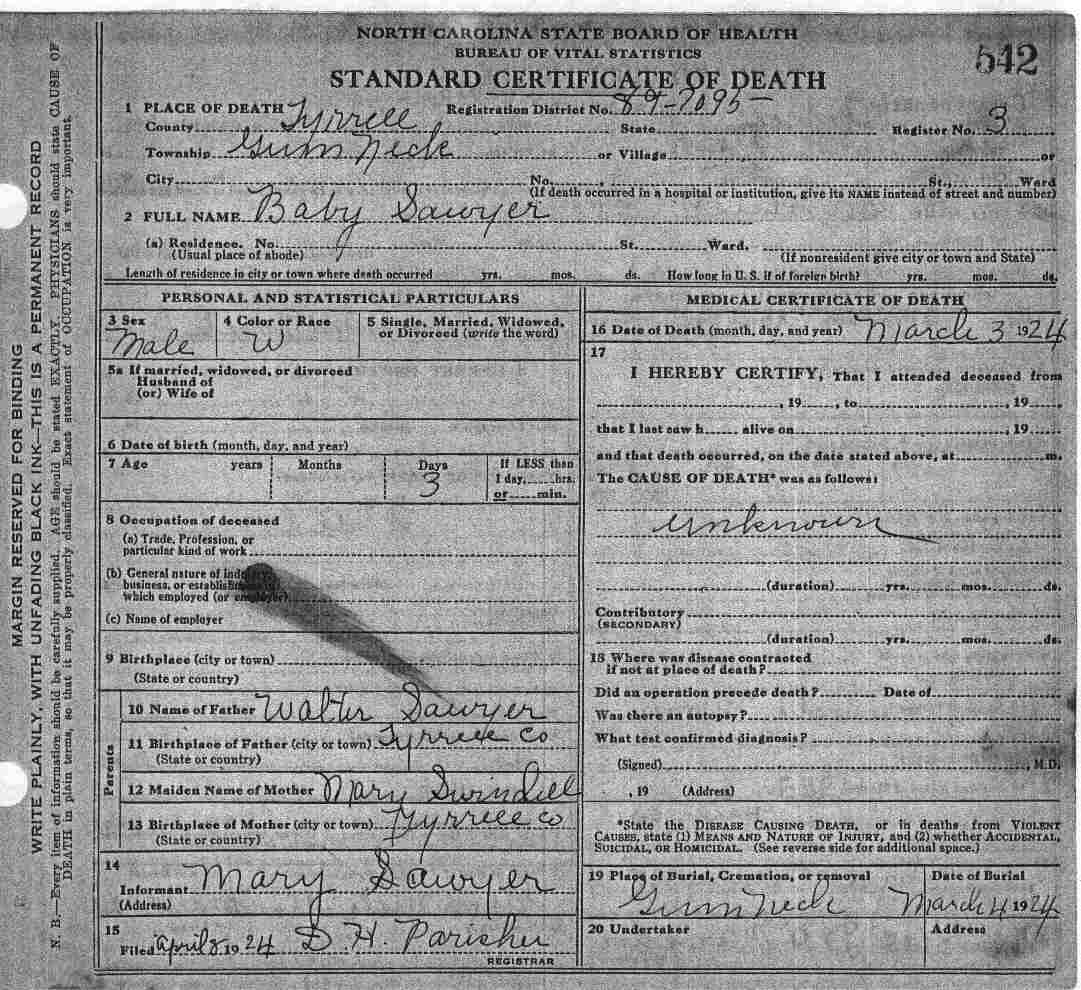 NORTH CAROLINA STATE BOARD OF HEALTH
BUREAU OF VITAL STATISTICS
542
STANDARD CERTIFICATE OF DEATH
1 PLACE OF DEATH Registration District No. 89-7095-
County Tyrrell State Register No. 3
Township Gum Neck or Village or
City No. , St., Ward
(If death occurred in a hospital or institution, give its NAME instead of street and number)
2 FULL NAME Baby Sawyer
(a) Residence. No. St. Ward.
(Usual place of abode) (If nonresident give city or town and State)
Length of residence in city or town where death occurred yrs. mos. ds. How long in U. S. if of foreign birth? yrs. mos. ds.
PERSONAL AND STATISTICAL PARTICULARS
3 Sex 4 Color or Race 5 Single, Married, Widowed,
or Divorced (write the word)
Male W
5a If married, widowed, or divorced
Husband of
(or) Wife of
6 Date of birth (month, day, and year)
7 Age years Months Days If LESS than
1 day, hrs.
3 or min.
8 Occupation of deceased
(a) Trade, Profession, or
particular kind of work
(b) General nature of industry,
business, or establishment in
which employed (or employer)
(c) Name of employer
9 Birthplace (city or town)
(State or country)
Parents
10 Name of Father Walter Sawyer
11 Birthplace of Father (city or town) Tyrrell Co
(State or country)
12 Maiden Name of Mother Mary Swindell
13 Birthplace of Mother (city or town) Tyrrell Co
(State or country)
14
Informant Mary Sawyer
(Address)
15
Filed April 8 1924 D. H. Parisher
REGISTRAR
MEDICAL CERTIFICATE OF DEATH
16 Date of Death (month, day, and year) March 3 1924
17
I HEREBY CERTIFY, That I attended deceased from
, 19 , to , 19
that I last saw h alive on , 19
and that death occurred, on the date stated above, at m.
The CAUSE OF DEATH* was as follows:
unknown
(duration) yrs. mos. ds.
Contributory
(SECONDARY)
(duration) yrs. mos. ds.
18 Where was disease contracted
if not at place of death?
Did an operation precede death? Date of
Was there an autopsy?
What test confirmed diagnosis?
(Signed) , M.D.
, 19 (Address)
*State the DISEASE CAUSING DEATH, or in deaths from VIOLENT
CAUSES, state (1) MEANS AND NATURE OF INJURY, and (2) whether ACCIDENTAL,
SUICIDAL, OR HOMICIDAL. (See reverse side for additional space.)
19 Place of Burial, Cremation, or removal Date of Burial
Gum Neck March 4 1924
20 Undertaker Address
MARGIN RESERVED FOR BINDING
WRITE PLAINLY, WITH UNFADING BLACK INK—THIS IS A PERMANENT RECORD
N. B.—Every item of information should be carefully supplied. AGE should be stated EXACTLY. PHYSICIANS should state CAUSE OF
DEATH in plain terms, so that it may be properly classified. Exact statement of OCCUPATION is very important.